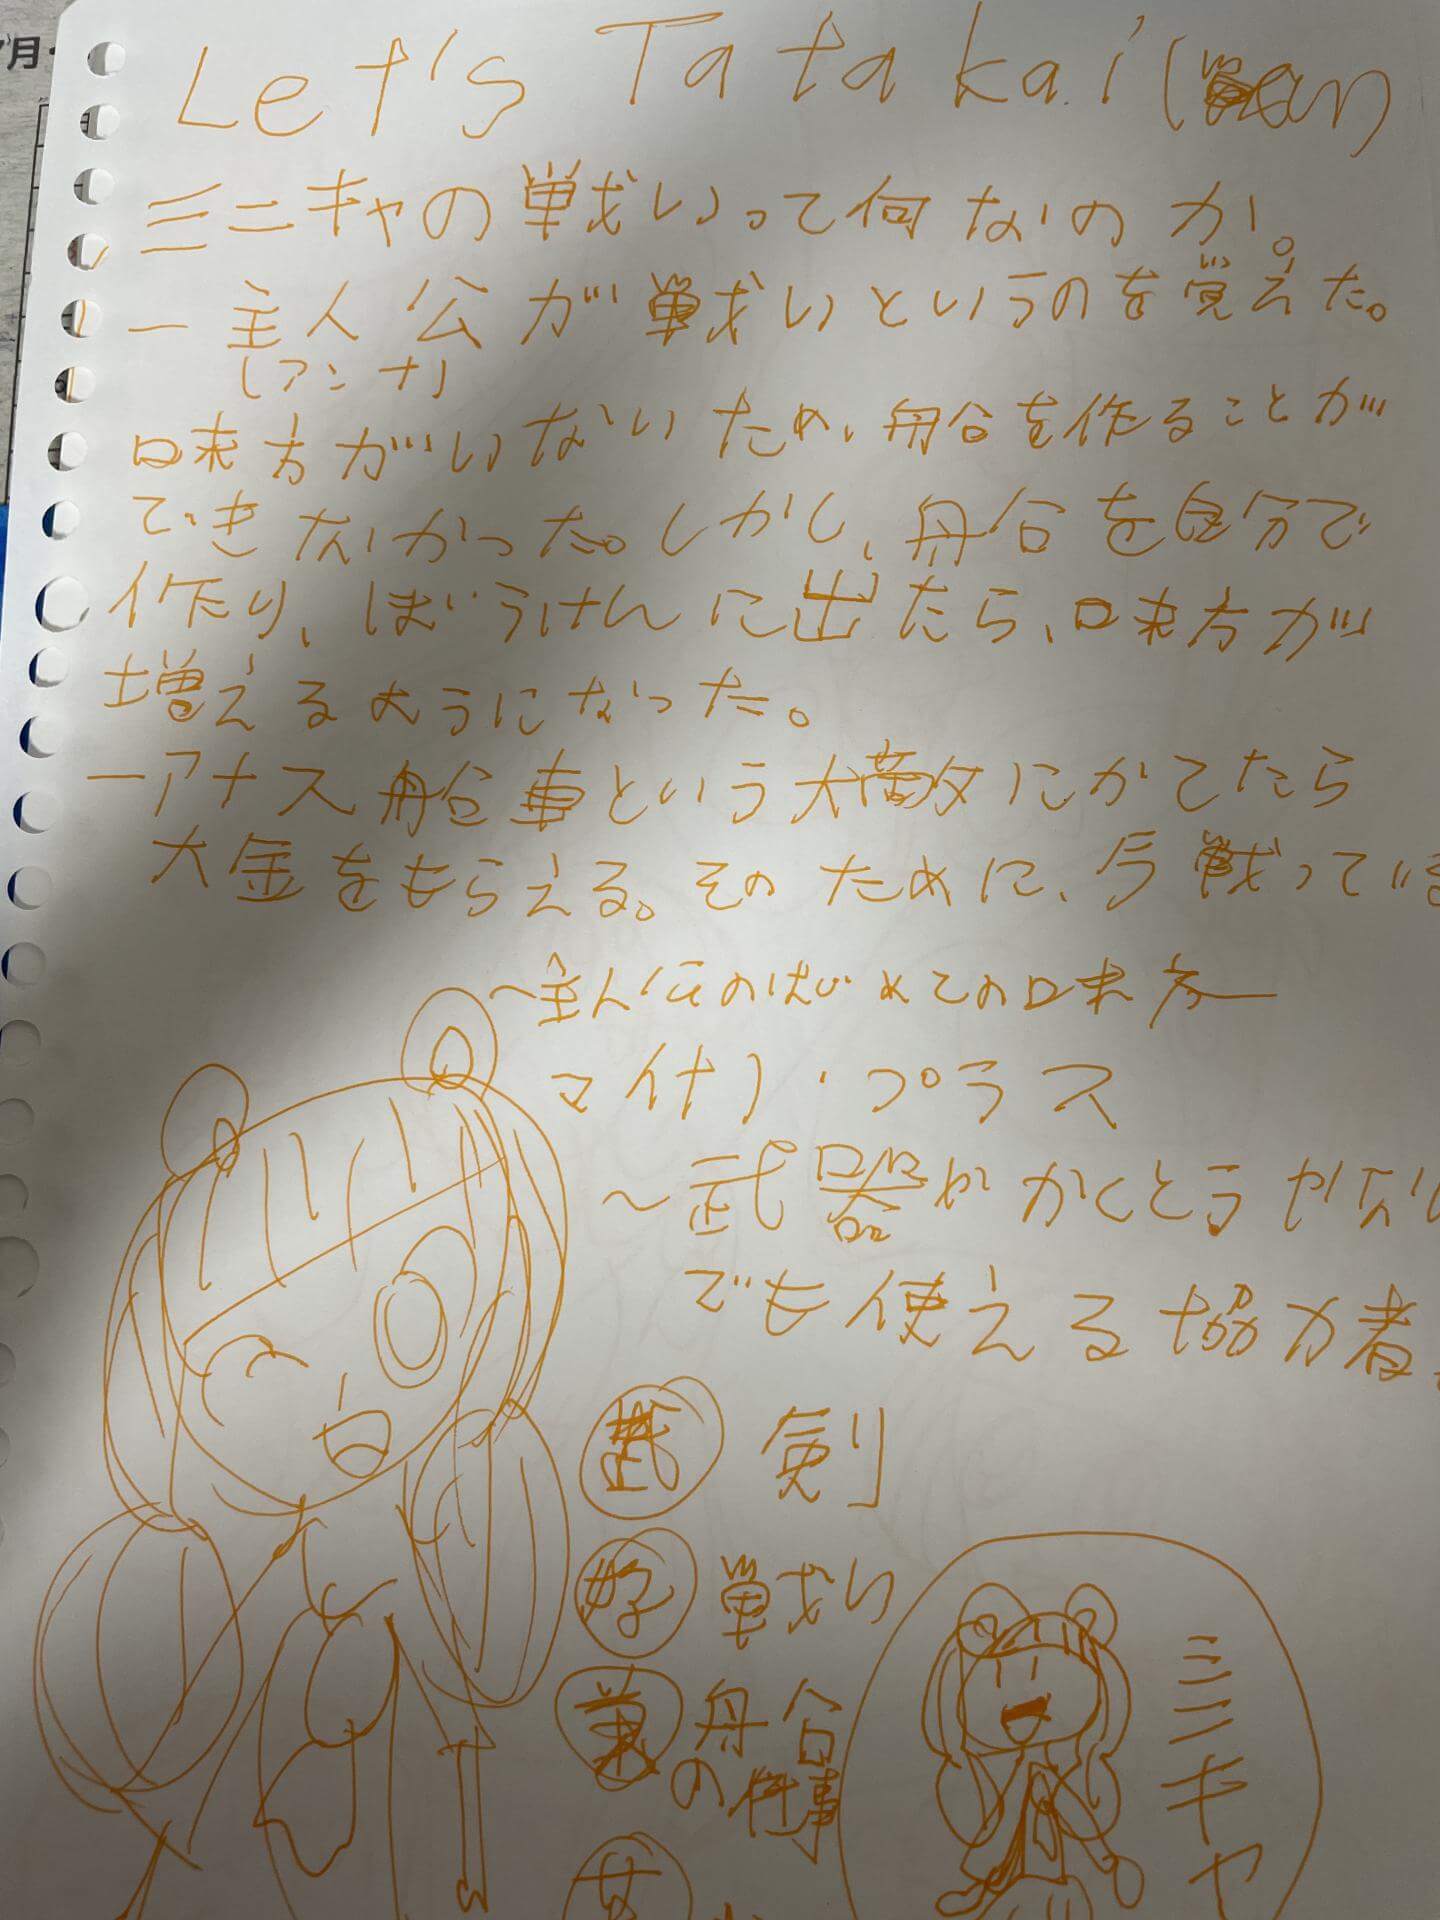 7月
Let's Tatakai (
ミニキャの戦いって何なのか。
ー主人公が戦いというのを覚えた。
(アンナ)
味方がいないため、船を作ることが
できなかった。しかし、船を自分で
作り、ぼうけんに出たら、味方が
増えるようになった。
ーアナス船車という大敵にかてたら
大金をもらえる。そのために、今戦っている
～主人公のはじめての味方ー
マイナ・プラス
～武器やかくとうやなん
でも使える協力者
武 剣
好 戦い
業 船
の仕事
苦
ミニキャ